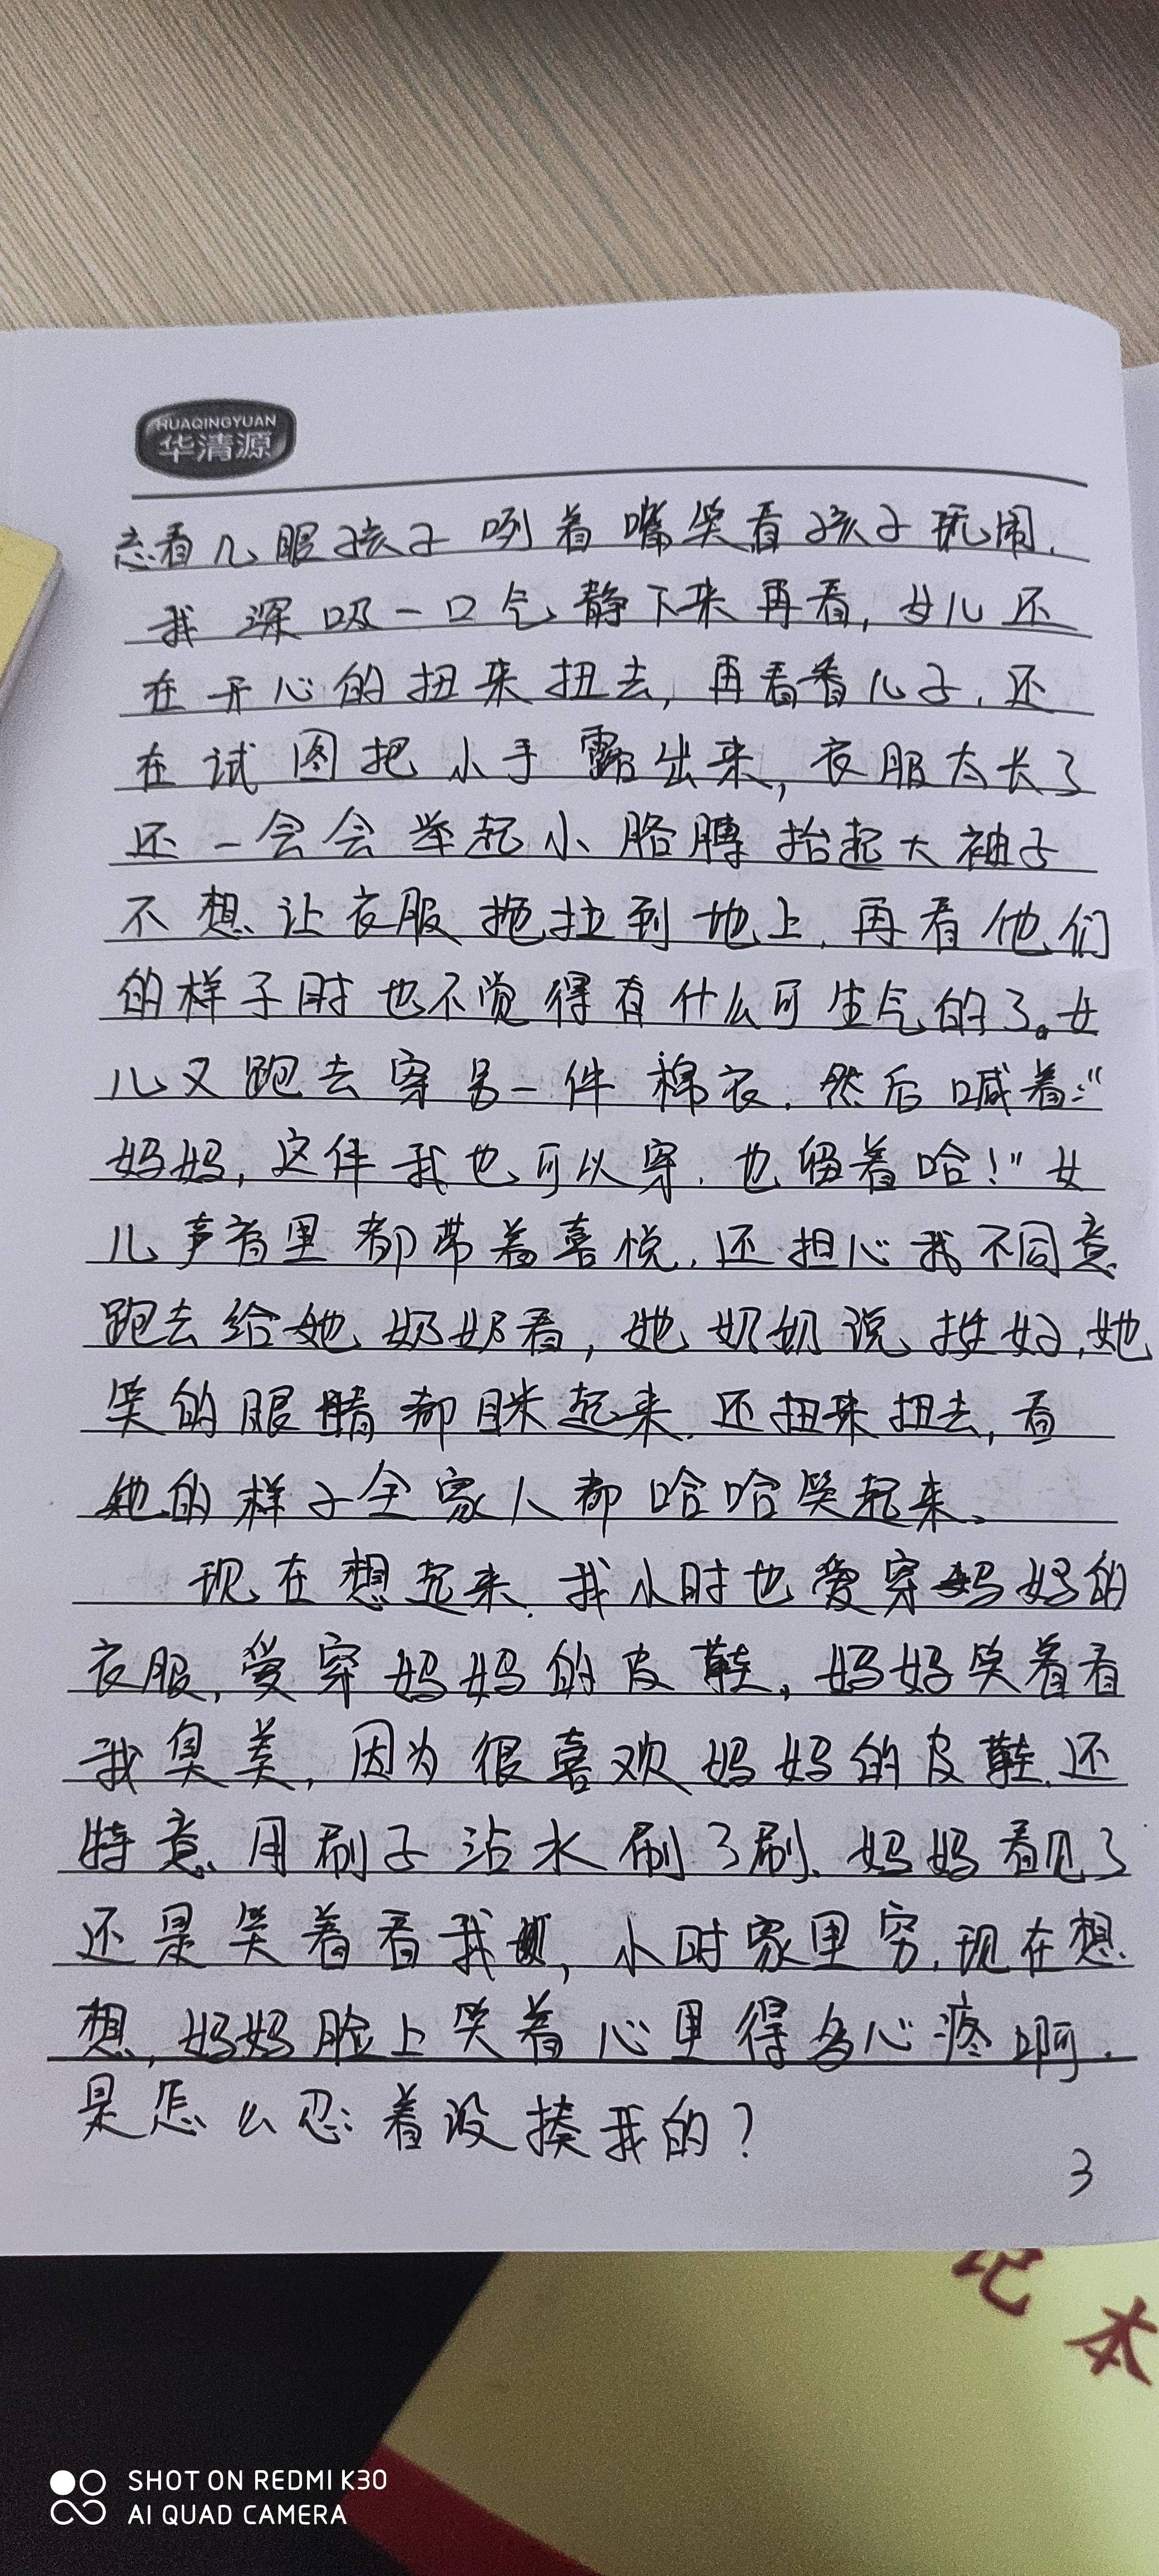 HUAQINGYUAN
华清源
忘看几眼孩子咧着嘴笑看孩子玩闹.
我深吸一口气静下来再看,女儿还
在开心的扭来扭去,再看看儿子,还
在试图把小手露出来,衣服太长了
还一会会举起小胳膊抬起大袖子
不想让衣服拖拉到地上,再看他们
的样子时也不觉得有什么可生气的了。女
儿又跑去穿另一件棉衣,然后喊着:“
妈妈,这件我也可以穿,也留着哈!”女
儿声音里都带着喜悦,还担心我不同意
跑去给她奶奶看,她奶奶说挺好,她
笑的眼睛都眯起来,还扭来扭去,看
她的样子全家人都哈哈笑起来、
现在想起来,我小时也爱穿妈妈的
衣服,爱穿妈妈的皮鞋,妈妈笑着看
我臭美,因为很喜欢妈妈的皮鞋,还
特意用刷子沾水刷了刷、妈妈看见了
还是笑着看我,小时家里穷,现在想
想,妈妈脸上笑着心里得多心疼啊.
是怎么忍着没揍我的?
3
记本
SHOT ON REDMI K30
AI QUAD CAMERA